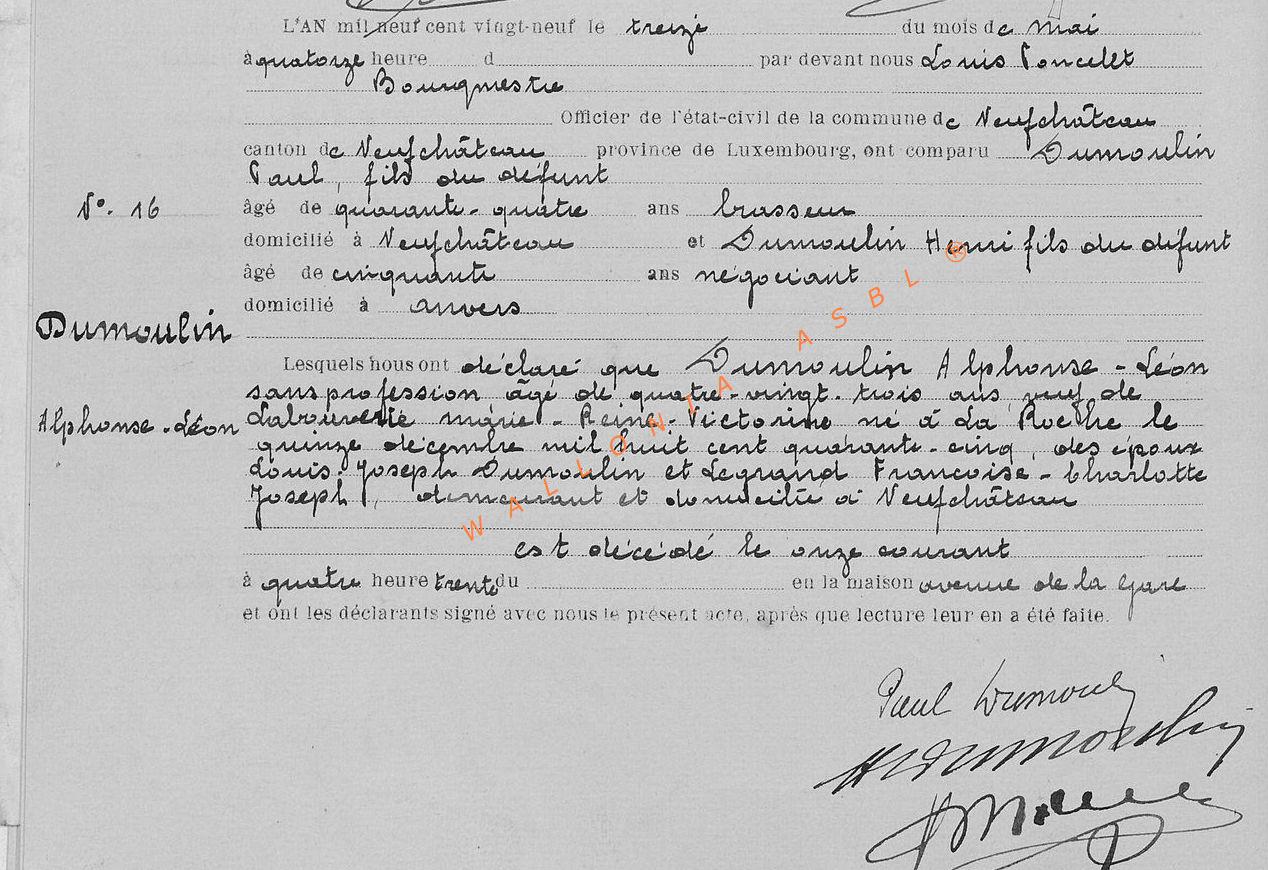 L'AN mil neuf cent vingt-neuf le treize du mois de mai
à quatorze heure d par devant nous Louis Poncelet
Bourgmestre
Officier de l'état-civil de la commune de Neufchâteau
canton de Neufchâteau province de Luxembourg, ont comparu Dumoulin
Paul, fils du défunt
N°. 16
âgé de quarante-quatre ans brasseur
domicilié à Neufchâteau et Dumoulin Henri fils du défunt
âgé de cinquante ans négociant
domicilié à anvers
Dumoulin
Lesquels nous ont déclaré que Dumoulin Alphonse-Léon
sans profession âgé de quatre-vingt-trois ans veuf de
Alphonse-Léon
Labouverie marie-Reine-Victorine né à La Roche le
quinze décembre mil huit cent quarante-cinq, des époux
Louis-Joseph Dumoulin et Legrand Francoise-Charlotte
Joseph, demeurant et domicilié à Neufchâteau
est décédé le onze courant
à quatre heure trente du en la maison avenue de la gare
et ont les déclarants signé avec nous le présent acte, après que lecture leur en a été faite.
WALLONIA ASBL ®
Paul Dumoulin
H Dumoulin